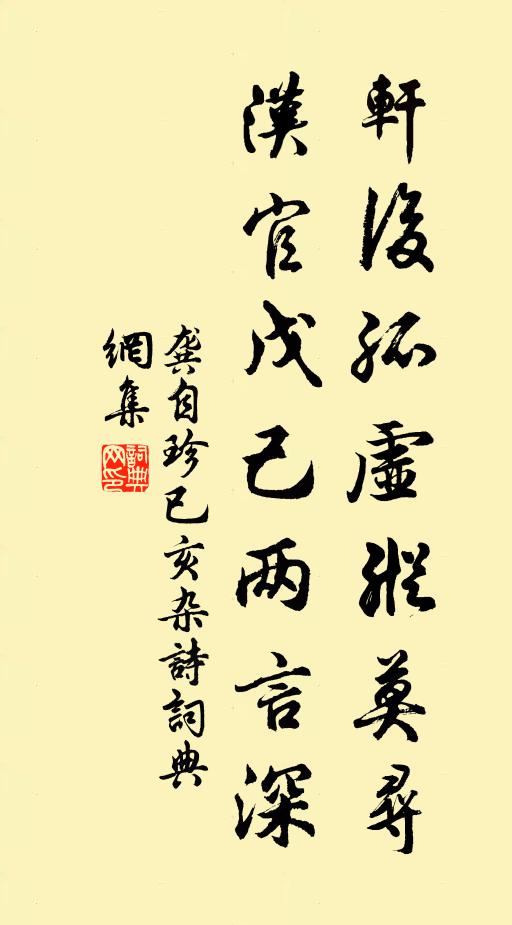 軒後孤虛縱莫尋
漢官戊己两言深
龔自珍己亥杂詩詞典
網集
詞典
网印